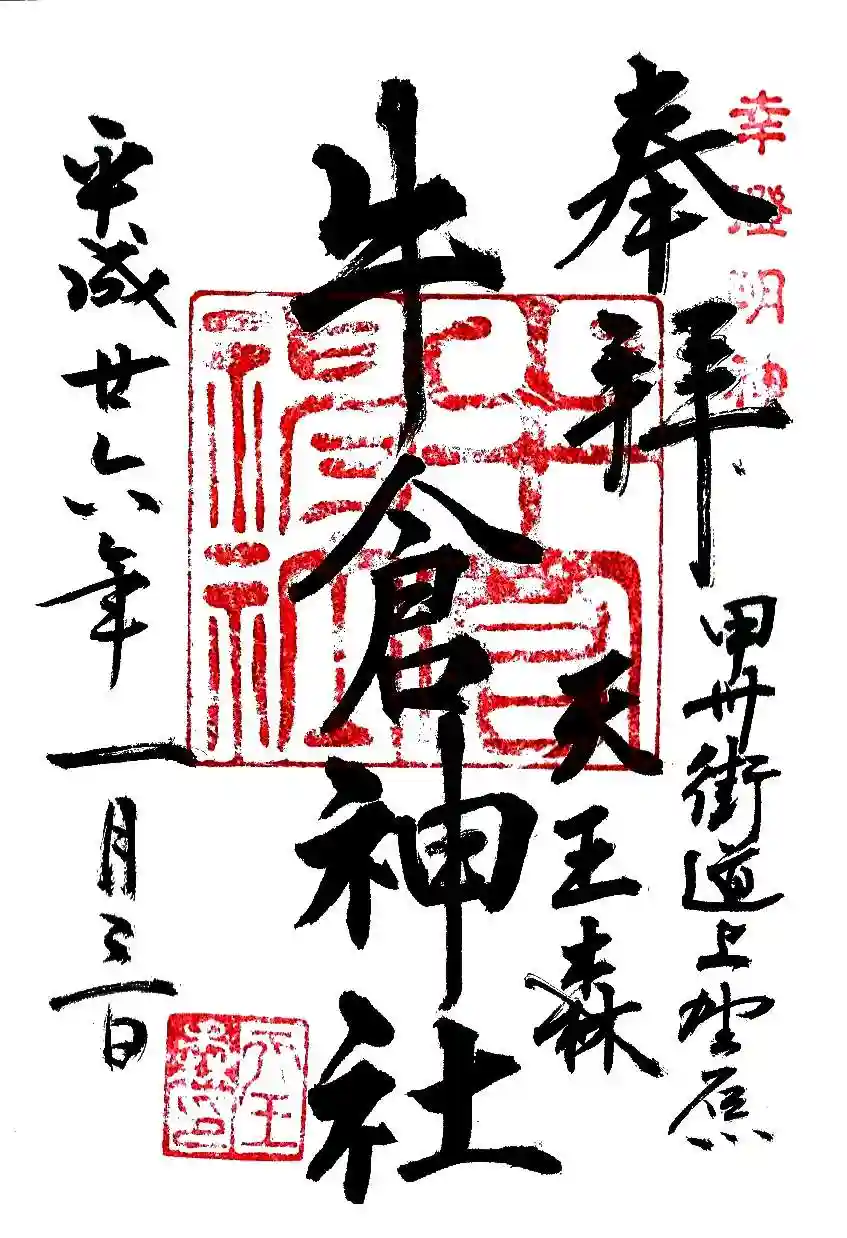 幸燈明神
奉拝
甲州街道上野原
天王森
牛倉神社
平成廿六年一月三日
牛倉神社